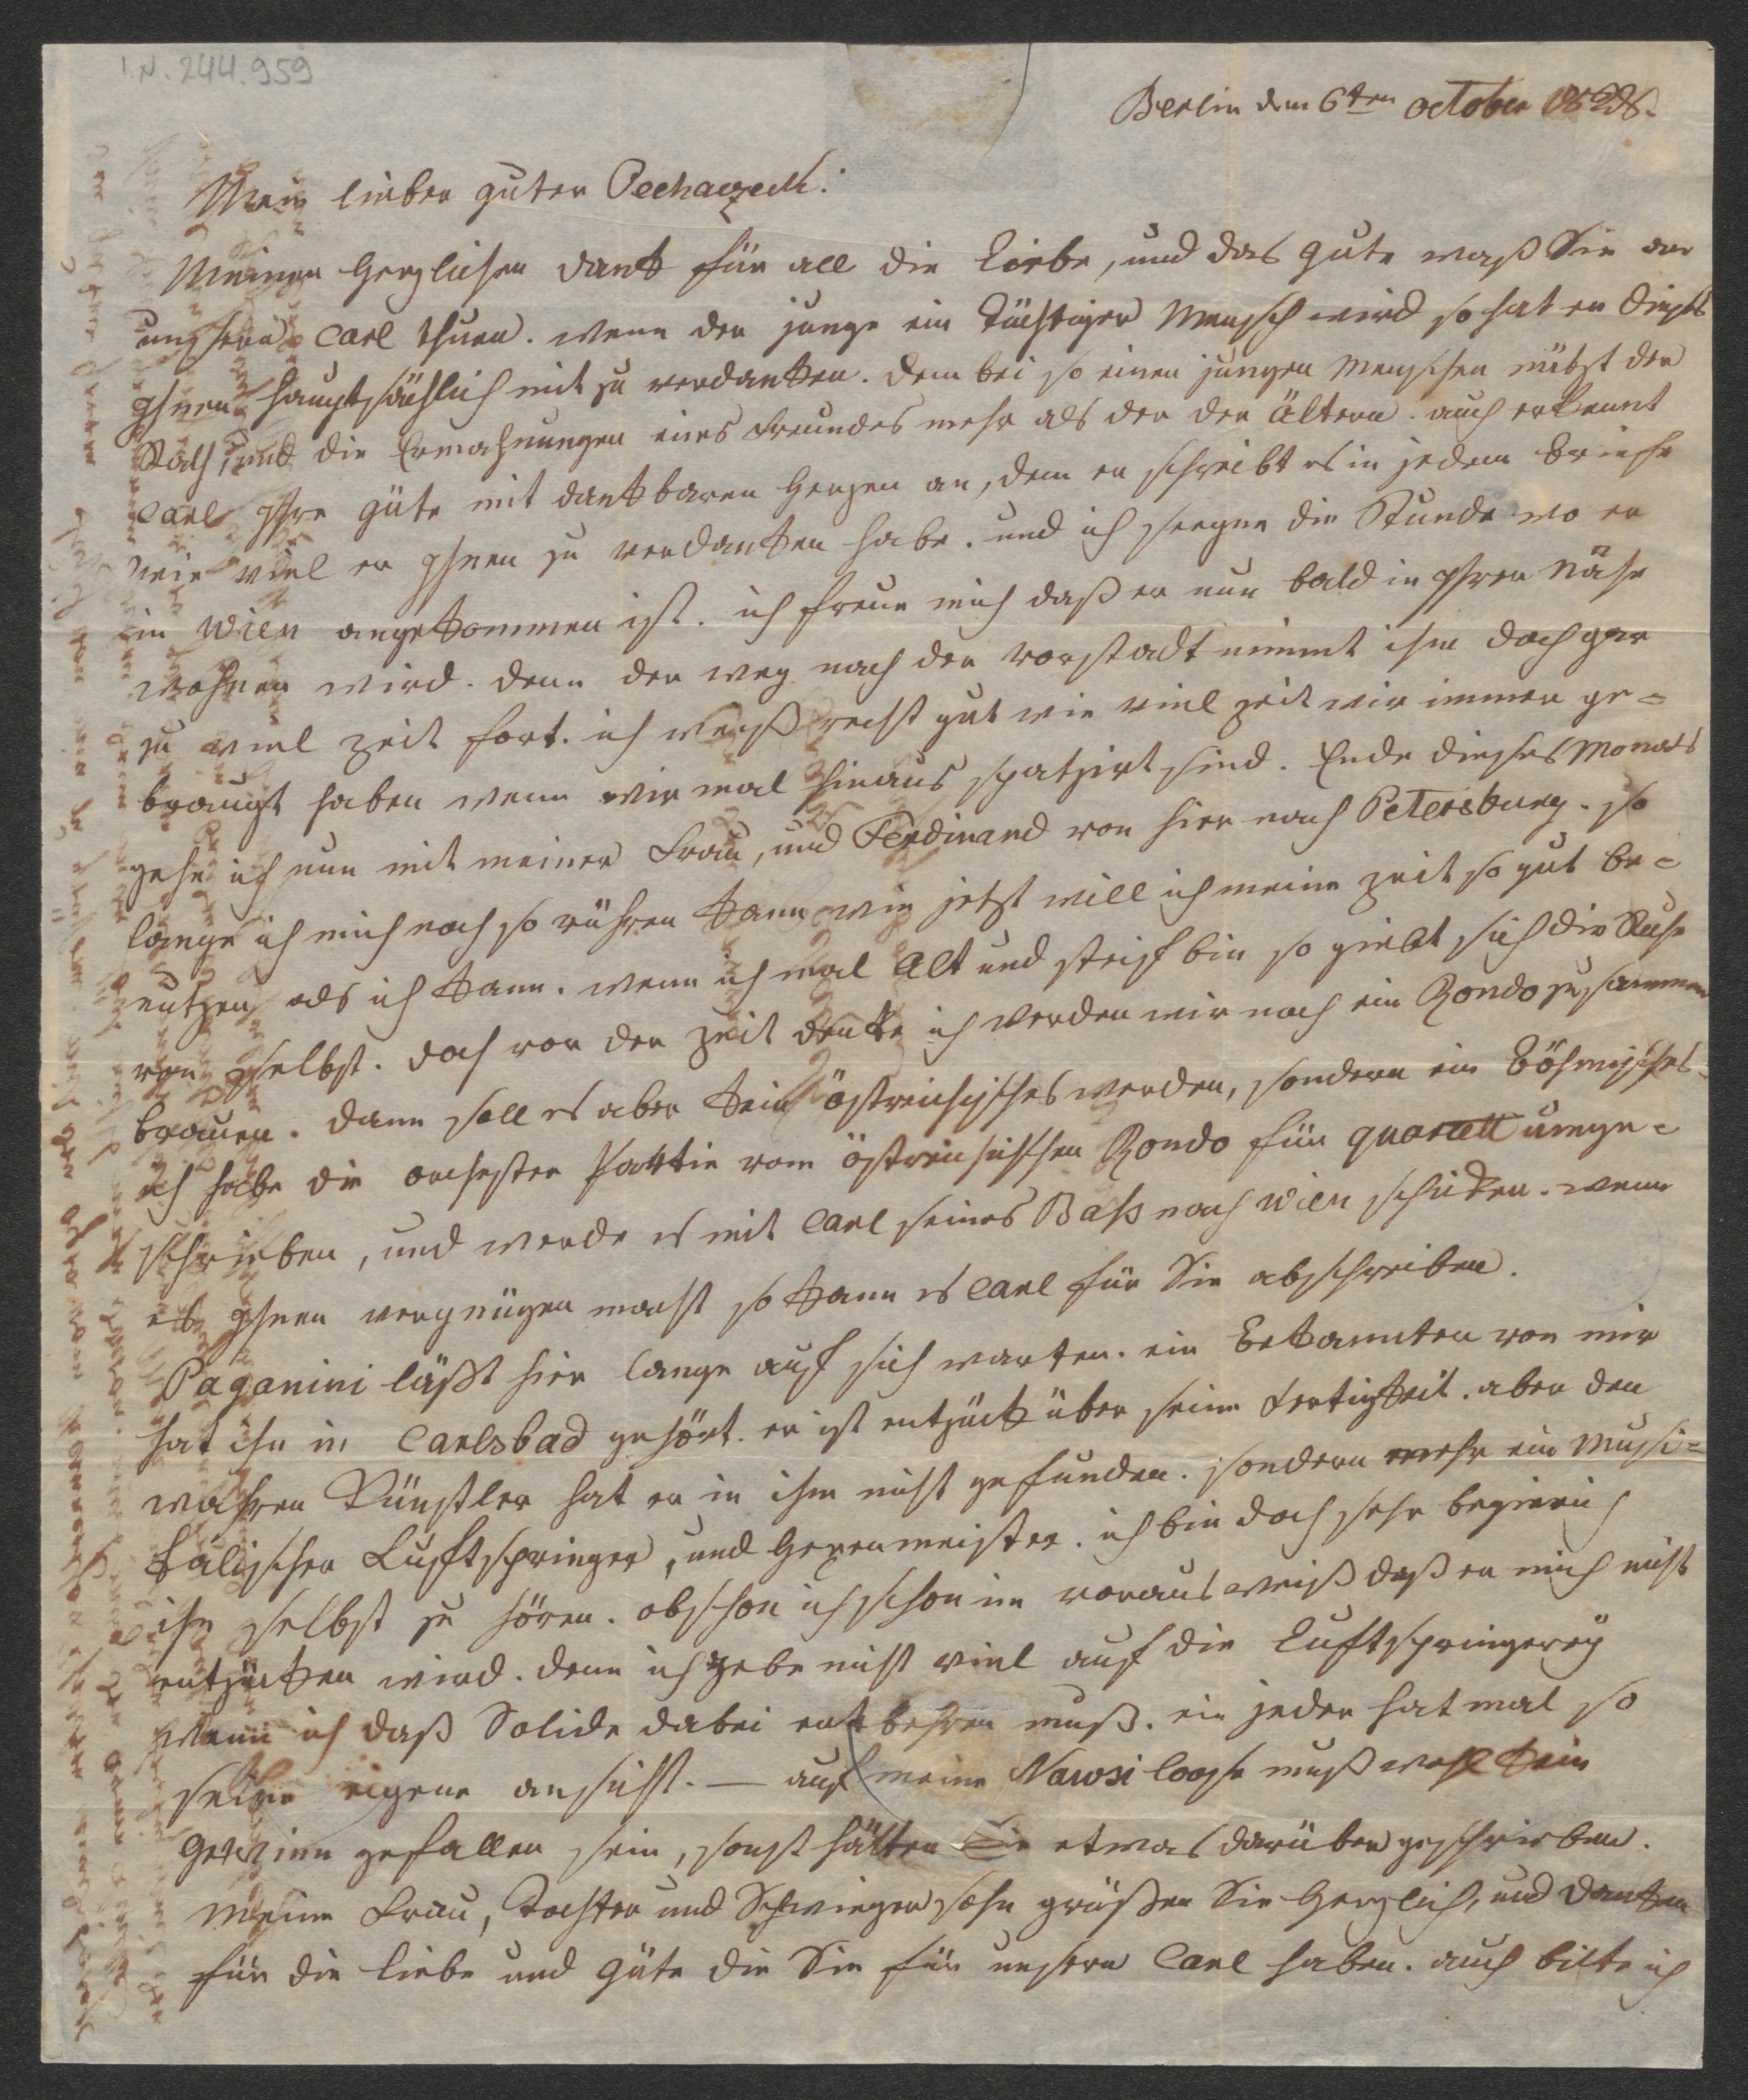 I.N. 244.959
Berlin dem 6ten october 1828.
Mein lieber guter Pechaczeck:
Meinen herzlichen dank für all die Liebe, und das gute waß Sie an
unsern Carl thuen. wenn der junge ein tüchtiger Mensch wird so hat er dieses
Ihnen hauptsächlich mit zu verdanken. denn bei so einen jungen Menschen nützt der
Rath, und die Ermahnungen eines Freundes mehr als der der Ältern. auch erkennt
Carl Ihre güte mit dankbaren Herzen an, denn er schreibt es in jedem Briefe
wie viel er Ihnen zu verdanken habe. und ich seegne die Stunde wo er
in Wien angekommen ist. ich freue mich daß er nun bald in Ihrer Nähe
wohnen wird. denn der weg nach der vorstadt nimmt ihm doch gar
zu viel zeit fort. ich weiß recht gut wie viel zeit wir immer ge-
braucht haben wenn wir mal hinaus spatzirt sind. Ende dieses Monats
gehe ich nun mit meiner Frau, und Ferdinand von hier nach Petersburg. so
lange ich mich noch so rühren kann wie jetzt will ich meine zeit so gut be-
nutzen als ich kann. wenn ich mal Alt und steif bin so giebt sich die Ruhe
von selbst. doch vor der zeit denke ich werden wir noch ein Rondo zusammen
brauen. dann soll es aber kein östreichisches werden, sondern ein Böhmisches.
ich habe die orchester Parttie vom östreichischen Rondo für quartett umge-
schrieben, und werde es mit Carl seines Baß nach Wien schicken. wenn
es Ihnen vergnügen macht so kann es Carl für Sie abschreiben.
Paganini läßt hier lange auf sich warten. ein Bekannter von mir
hat ihn in Carlsbad gehört. er ist entzückt über seine Fertigkeit. aber den
wahren Künstler hat er in ihm nicht gefunden. sondern mehr ein Musi-
kalischer Luftspringer, und Hexenmeister. ich bin doch sehr begierich
ihn selbst zu hören. obschon ich schon im voraus weiß daß er mich nicht
entzücken wird. denn ich gebe nicht viel auf die Luftspringerey
wenn ich daß Solide dabei entbehren muß. ein jeder hat mal so
seine eigene ansicht. — auf meine loose muß wohl kein
gewinn gefallen sein, sonst hätten Sie etwas darüber geschrieben.
Meine Frau, Tochter und Schwiegersohn grüßen Sie herzlich, und danken
für die liebe und güte die Sie für unsern Carl haben. auch bitte ich